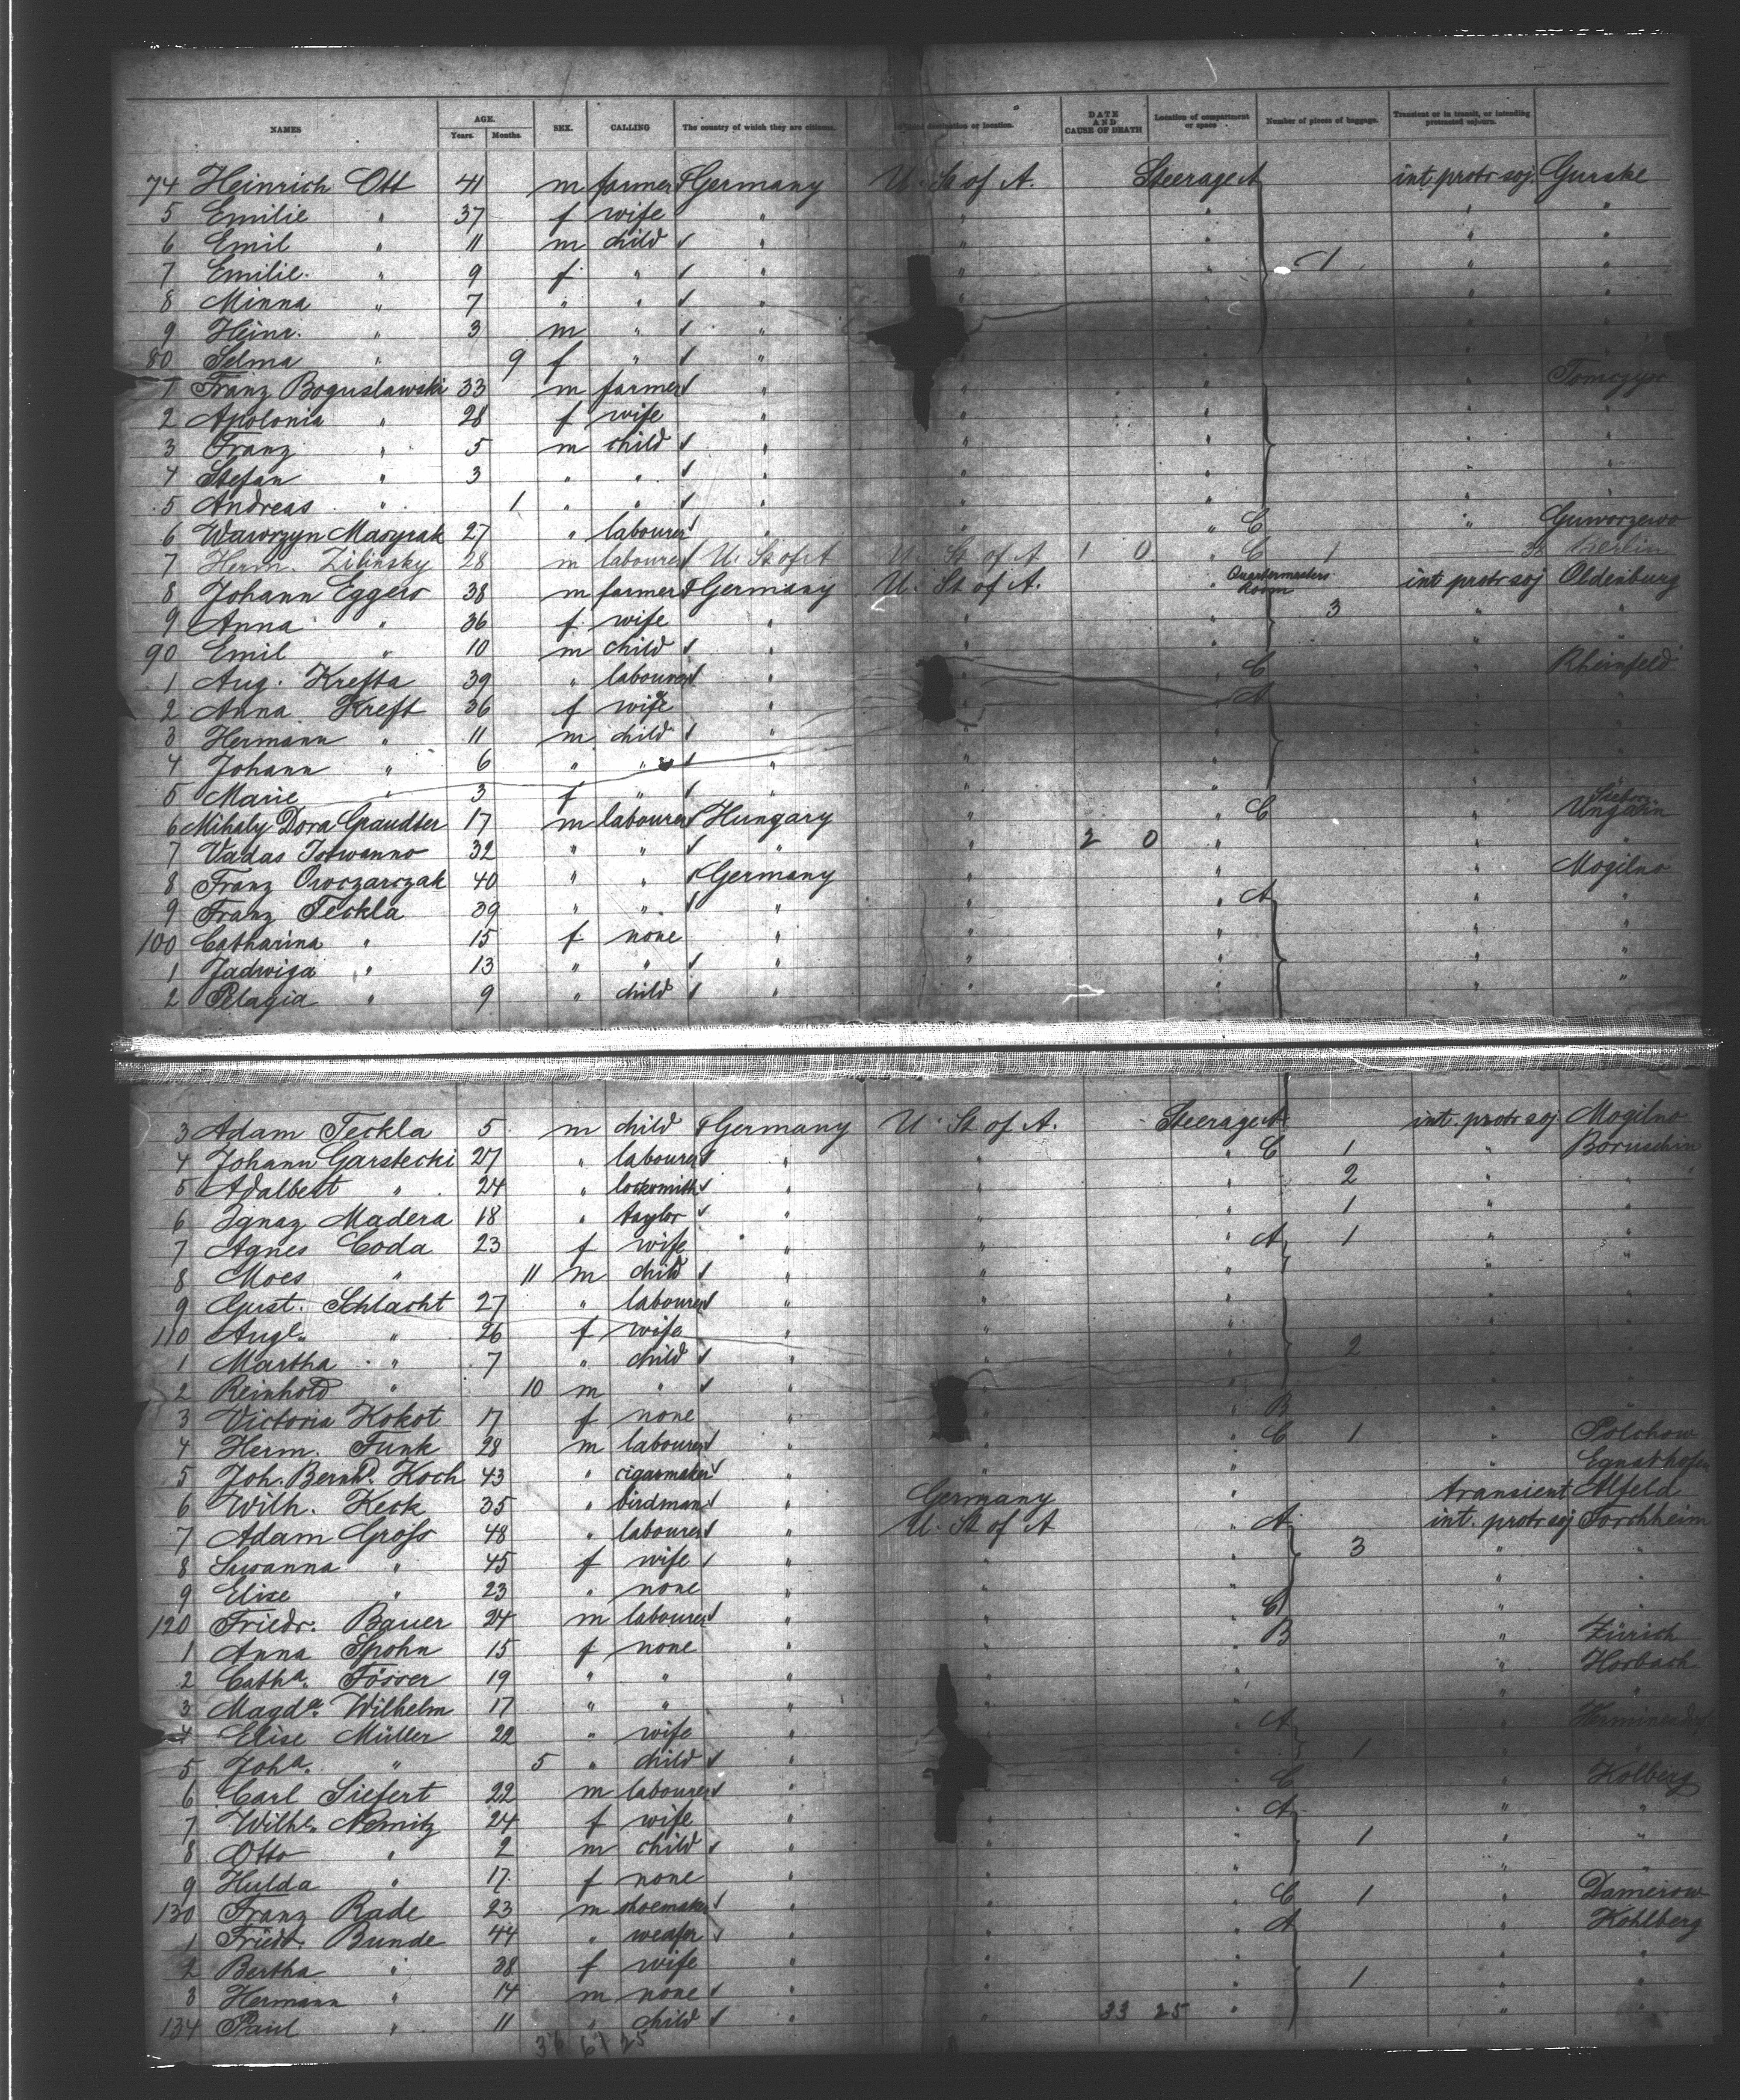 NAMES AGE. Years. Months. SEX. CALLING The country of which they are citizens. destination or location. DATE AND CAUSE OF DEATH Location of compartment or space Number of pieces of baggage. Transient or in transit, or intending protracted sojourn.
74 Heinrich Ott 41 m farmer Germany U. St of A. Steerage A int. protr soj. Gurske
5 Emilie " 37 f wife " " " " "
6 Emil " 11 m child " " " " "
7 Emilie " 9 f " " " " 1 " "
8 Minna " 7 " " " " " " "
9 Heinr. " 3 m " " " "
80 Selma " 9 f " " "
1 Franz Boguslawski 33 m farmer " " " "
2 Apolonia " 28 f wife " " " " "
3 Franz " 5 m child " " " " "
4 Stefan " 3 " " " " " " "
5 Andreas " 1 " " " " " " "
6 Wawrzyn Masyrak 27 " labourer " " " C " Guworzewo
7 Herm. Zilinsky 28 m labourer U. St of A U. St of A 1 0 " C 1 Berlin
8 Johann Eggers 38 m farmer Germany U. St of A. " Quartermasters Room int protr soj Oldenburg
9 Anna " 36 f wife " " " 3 " "
90 Emil " 10 m child " " " " "
1 Aug. Krefta 39 " labourer " " C " Rheinfeld
2 Anna Kreft 36 f wife " " A "
3 Hermann " 11 m child " " "
4 Johann " 6 " " " " "
5 Marie " 3 f " " " " "
6 Mihaly Dora Graudter 17 m labourer Hungary " " C " Ungarn
7 Vadas Istwanno 32 " " " " 2 0 " " "
8 Franz Owczarczak 40 " " Germany " " " Mogilno
9 Franz Teckla 39 " " " " " A " "
100 Catharina " 15 f none " " " " "
1 Jadwiga " 13 " " " " " " "
2 Pelagia " 9 " child " " " " "
3 Adam Teckla 5 m child Germany U. St of A. Steerage A int. protr soj. Mogilno
4 Johann Garstecki 27 " labourer " " " C 1 " Boruschin
5 Adalbert " 24 " locksmith " " " 2 " "
6 Ignaz Madera 18 " taylor " " " 1 " "
7 Agnes Coda 23 f wife " " " A 1 " "
8 Moes " 11 m child " " " " "
9 Gust. Schlacht 27 " labourer " " " " "
110 Auge. " 26 f wife " " " " "
1 Martha " 7 " child " " " 2 " "
2 Reinhold " 10 m " " " "
3 Victoria Kokot 17 f none " " " B " "
4 Herm. Funk 28 m labourer " " " C 1 " Polchow
5 Joh. Bernhd. Koch 43 " cigarmaker " " " " Egnathofen
6 Wilh. Keck 35 " birdman " Germany " transient Alfeld
7 Adam Gross 48 " labourer " U. St of A " A int. protr soj Forchheim
8 Susanna " 45 f wife " " " 3 " "
9 Elise " 23 " none " " " " "
120 Friedr. Bauer 24 m labourer " " " C " "
1 Anna Spohn 15 f none " " " B " Zürich
2 Catha. Fösser 19 " " " " " " Horbach
3 Magda. Wilhelm 17 " " " " " " "
4 Elise Müller 22 " wife " " " A "
5 Joha. " 5 " child " " " 1 "
6 Carl Siefert 22 m labourer " " " C " Kolberg
7 Wilhe. Nemitz 24 f wife " " " A " "
8 Otto " 2 m child " " " 1 " "
9 Hulda " 17 f none " " " " "
130 Franz Rade 23 m shoemaker " " " C 1 " Damerow
1 Friedr. Bunde 44 " weafer " " " A " Kohlberg
2 Bertha " 38 f wife " " " " "
3 Hermann " 14 m none " " " 1 " "
134 Paul " 11 " child " " 33 25 " " "
36 61 25